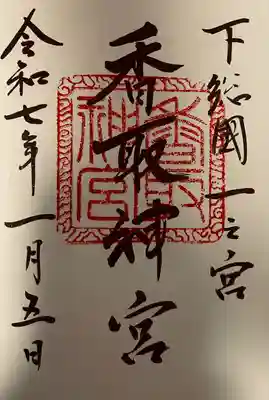 下総國一之宮
香取神宮
香取神宮
令和七年一月五日